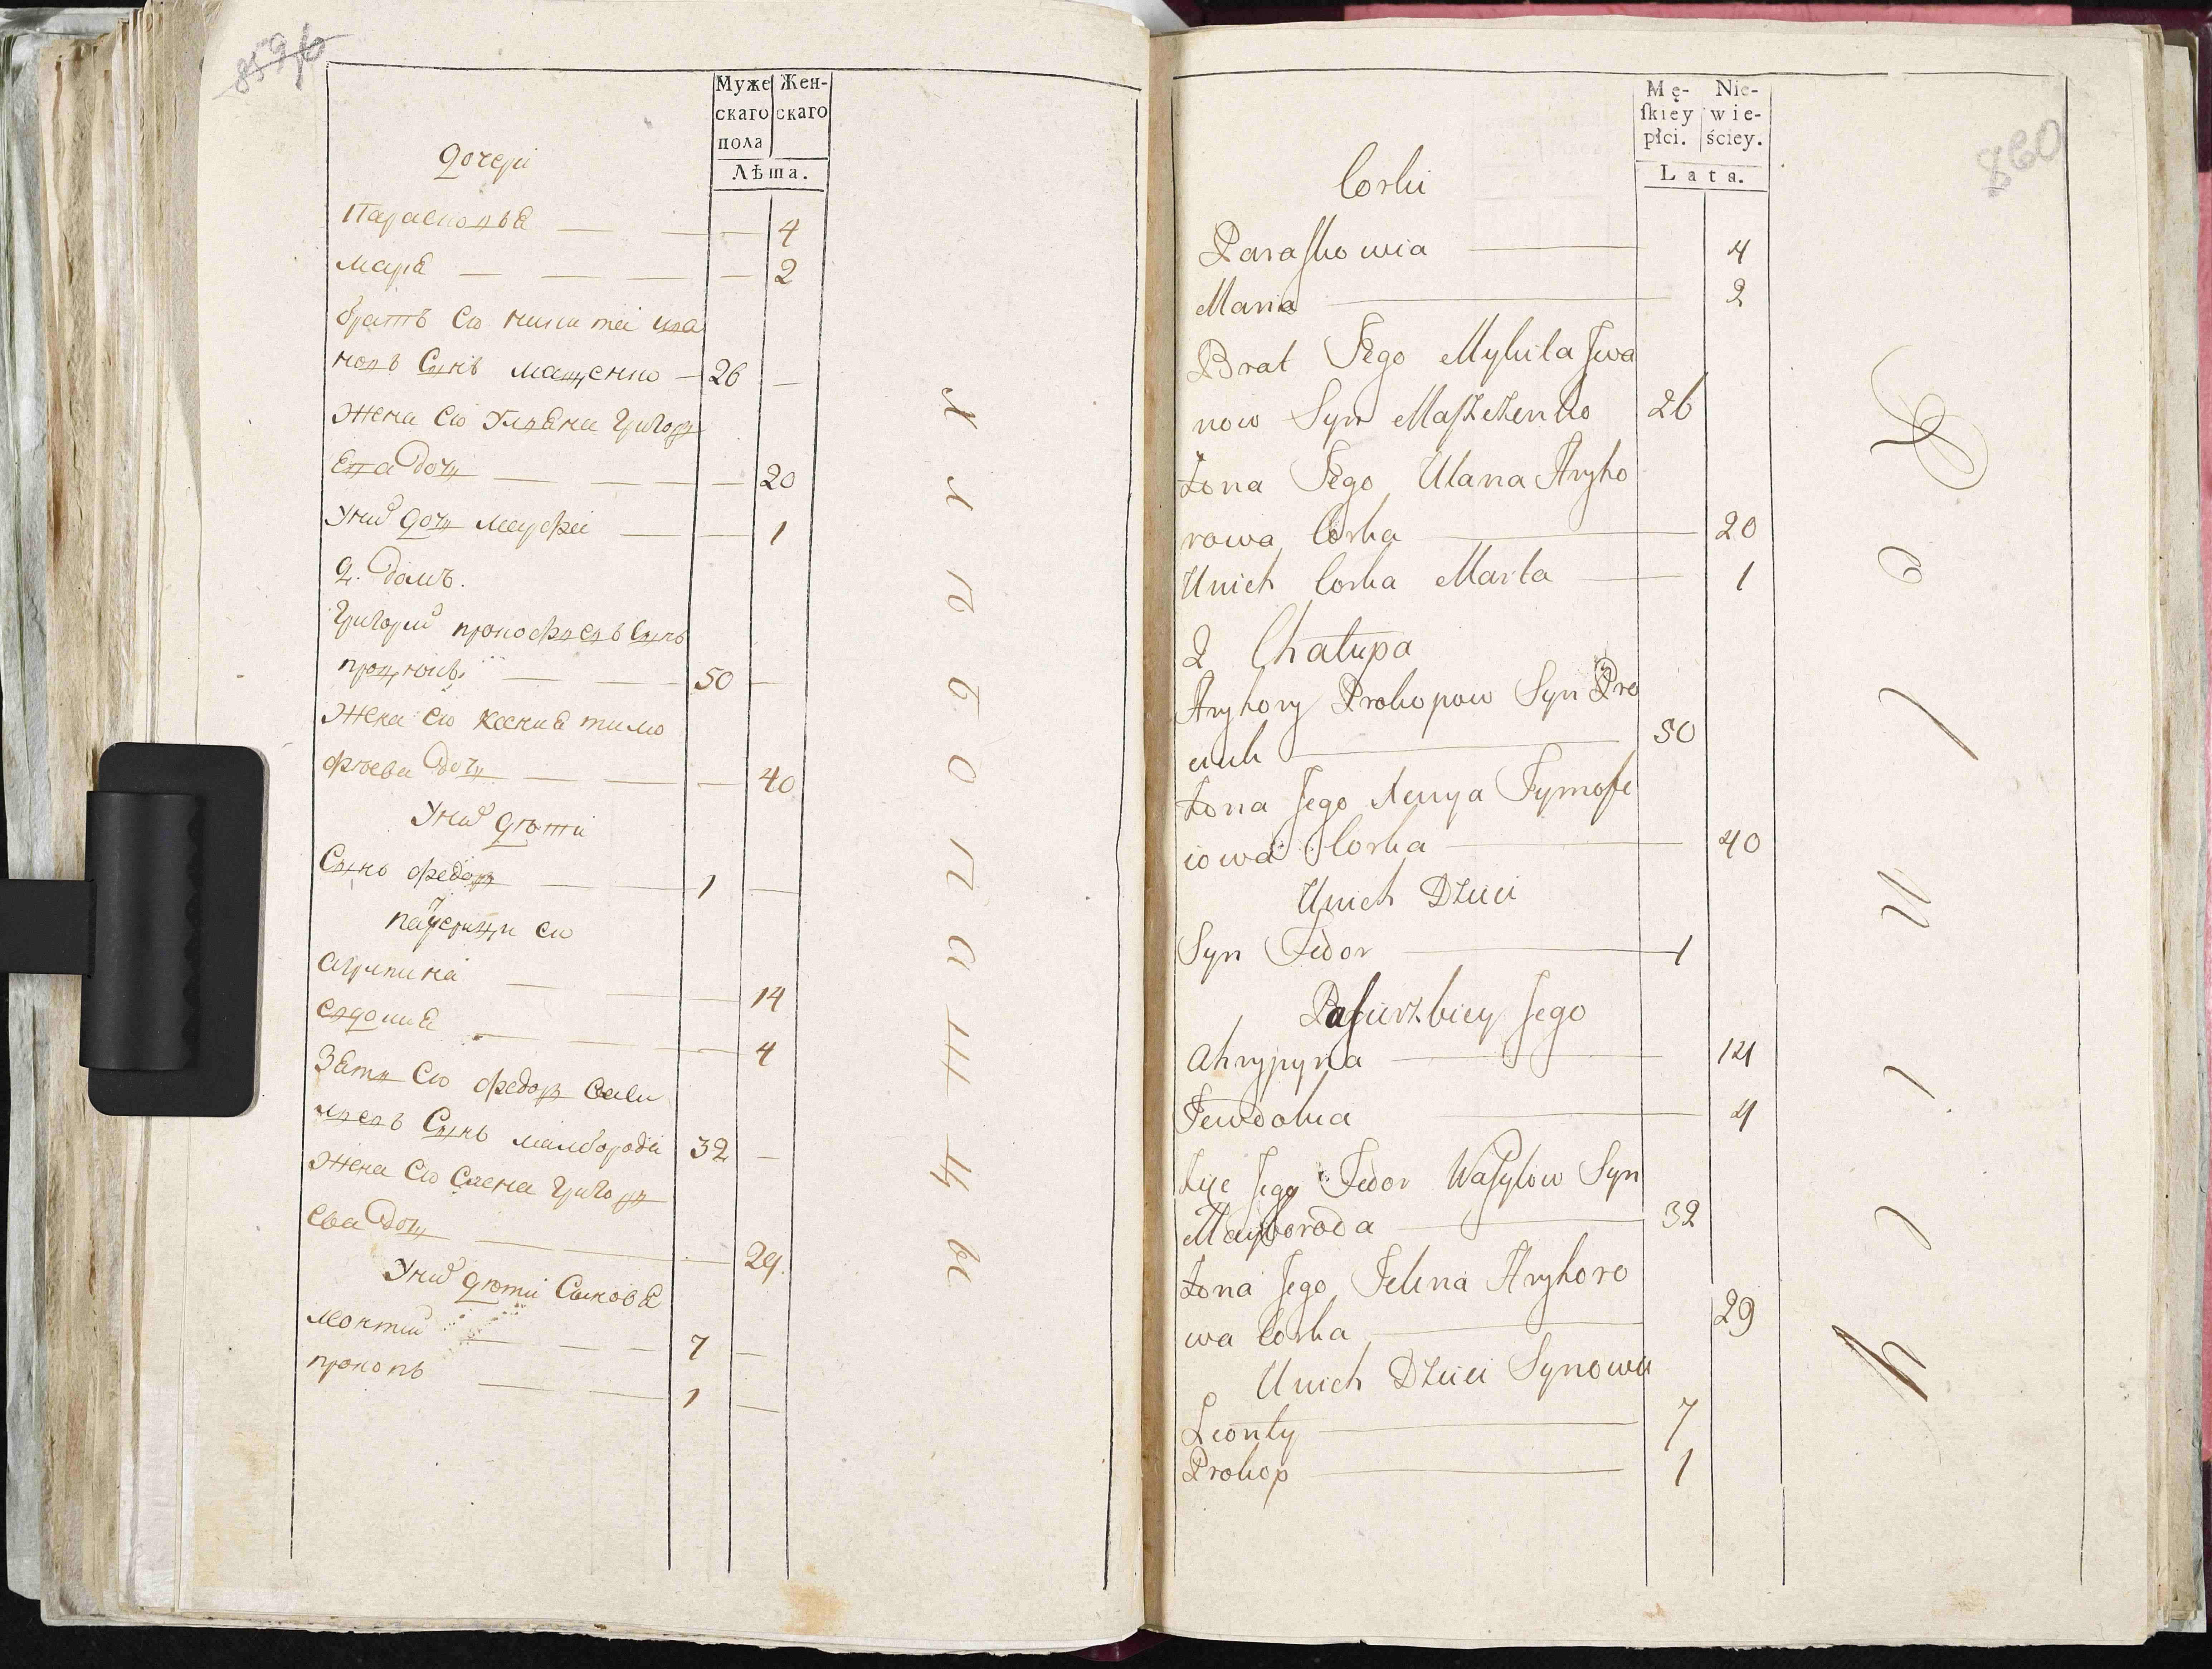 859об
Муже Жен-
скаго скаго
пола
Лѣта.
дочери
Парасковья — 4
Маря — 2
братъ ево Никитей ива
новъ Сынъ Мащенко — 26 —
Жена ево Ульяна Григорь
ева дочь — 20
У них дочь Марфа — 1
2. домъ.
Григорий прокофьевъ Сынъ
процюкъ — 50 —
Жена ево Ксения тимо
фѣева дочь — 40
У них дѣти
Сынъ федоръ — 1 —
падчерицы ево
Агрипина — 14
евдокия — 4
Зять ево федоръ Васи
льевъ Сынъ майборода 32 —
Жена ево елена Григорь
ева дочь — 29.
У них дѣти Сыновья
Леонтий — 7 —
прокопъ — 1 —
860
Mę- Nie-
ſkiey wie-
płci. ściey.
Lata.
Corki
Paraſkowia — 4
Maria — 2
Brat Jego Mykita Jwa
now Syn Maſzczenko 26
Żona Jego Ulana Hryho
rowa Corka — 20
Unich Corka Marta — 1
2 Chałupa
Hryhory Prokopow Syn Pro
ciuk — 50
Żona Jego Xenya Tymofe
iowa Corka — 40
Unich Dzieci
Syn Fedor — 1
Paſierzbicy Jego
Ahrypyna — 14
Jewdokia — 4
Zięć Jego Fedor Waſylow Syn
Mayboroda — 32
Żona Jego Jelena Hryhoro
wa Corka — 29
Unich Dzieci Synowie
Leonty — 7
Prokop — 1